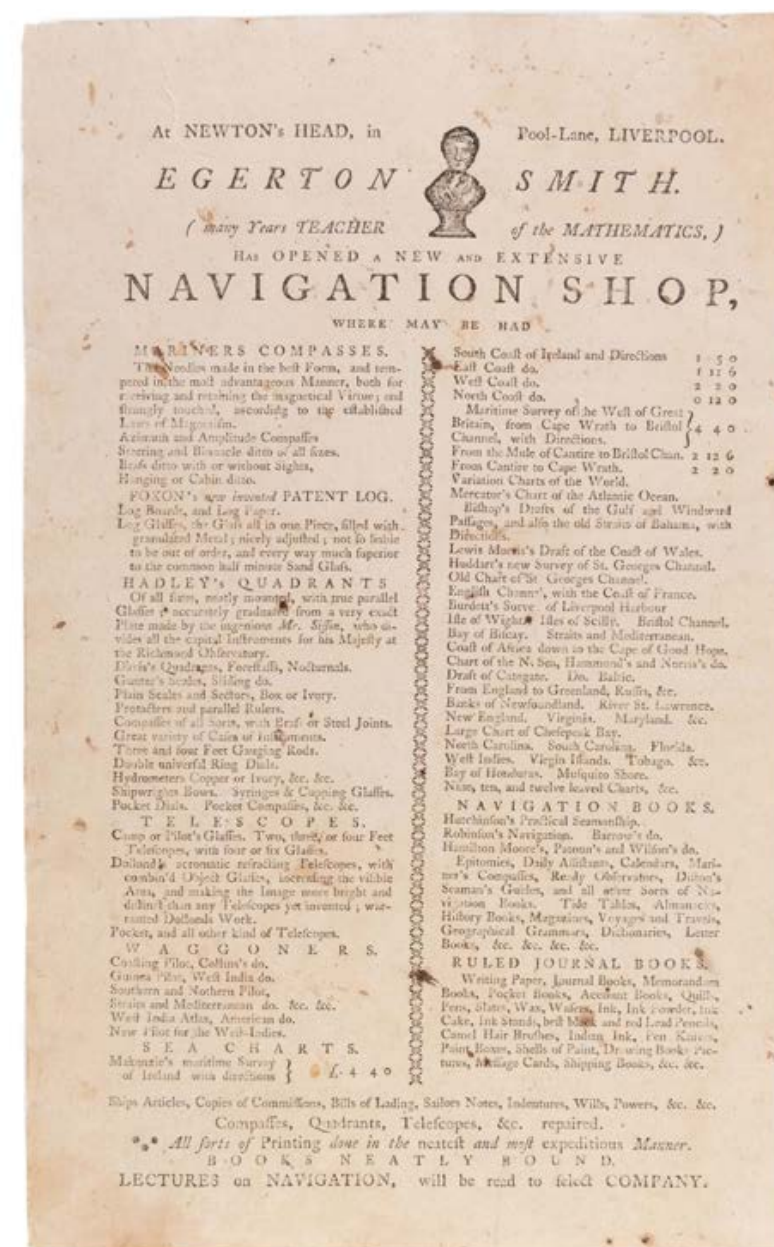 At NEWTON's HEAD, in Pool-Lane, LIVERPOOL.
EGERTON SMITH.
(many Years TEACHER of the MATHEMATICS,)
HAS OPENED A NEW AND EXTENSIVE
NAVIGATION SHOP,
WHERE MAY BE HAD
MARINERS COMPASSES.
The Needles made in the beſt Form, and tem-
pered in the moſt advantageous Manner, both for
receiving and retaining the magnetical Virtue; and
ſtrongly touched, according to the eſtabliſhed
Laws of Magnetiſm.
Azimuth and Amplitude Compaſſes
Steering and Binnacle ditto of all ſizes.
Braſs ditto with or without Sights,
Hanging or Cabin ditto.
FOXON's new invented PATENT LOG.
Log Boards, and Log Paper.
Log Glaſſes, the Glaſs all in one Piece, filled with
granulated Metal; nicely adjuſted; not ſo liable
to be out of order, and every way much ſuperior
to the common half minute Sand Glaſs.
HADLEY's QUADRANTS
Of all ſizes, neatly mounted, with true parallel
Glaſſes accurately graduated from a very exact
Plate made by the ingenious Mr. Siſſon, who di-
vides all the capital Inſtruments for his Majeſty at
the Richmond Obſervatory.
Davis's Quadrants, Foreſtaffs, Nocturnals.
Gunter's Scales, Sliding do.
Plain Scales and Sectors, Box or Ivory.
Protractors and parallel Rulers.
Compaſſes of all Sorts, with Braſs or Steel Joints.
Great variety of Caſes of Inſtruments.
Three and four Feet Gauging Rods.
Double univerſal Ring Dials.
Hydrometers Copper or Ivory, &c. &c.
Shipwrights Bows. Syringes & Cupping Glaſſes.
Pocket Dials. Pocket Compaſſes, &c. &c.
TELESCOPES.
Camp or Pilot's Glaſſes. Two, three, or four Feet
Teleſcopes, with four or ſix Glaſſes.
Dollond's acromatic refracting Teleſcopes, with
combin'd Object Glaſſes, increaſing the viſible
Area, and making the Image more bright and
diſtinct than any Teleſcopes yet invented; war-
ranted Dollonds Work.
Pocket, and all other kind of Teleſcopes.
WAGGONERS.
Coaſting Pilot, Collins's do.
Guinea Pilot, Weſt India do.
Southern and Nothern Pilot,
Straits and Mediterranean do. &c. &c.
Weſt India Atlas, American do.
New Pilot for the Weſt-Indies.
SEA CHARTS.
Makenzie's maritime Survey
of Ireland with directions } £. 4 4 0
South Coaſt of Ireland and Directions 1 5 0
Eaſt Coaſt do. 1 11 6
Weſt Coaſt do. 2 2 0
North Coaſt do. 0 12 0
Maritime Survey of the Weſt of Great
Britain, from Cape Wrath to Briſtol } 4 4 0
Channel, with Directions.
From the Mule of Cantire to Briſtol Chan. 2 12 6
From Cantire to Cape Wrath. 2 2 0
Variation Charts of the World.
Mercator's Chart of the Atlantic Ocean.
Biſhop's Drafts of the Gulf and Windward
Paſſages, and alſo the old Straits of Bahama, with
Directions.
Lewis Morris's Draft of the Coaſt of Wales.
Huddart's new Survey of St. Georges Channel.
Old Chart of St Georges Channel.
Engliſh Channel, with the Coaſt of France.
Burdett's Survey of Liverpool Harbour
Iſle of Wight Iſles of Scilly. Briſtol Channel.
Bay of Biſcay. Straits and Mediterranean.
Coaſt of Africa down to the Cape of Good Hope.
Chart of the N. Sea, Hammond's and Norris's do.
Draft of Categate. Do. Baltic.
From England to Greenland, Ruſſia, &c.
Banks of Newfoundland. River St. Lawrence.
New England. Virginia. Maryland. &c.
Large Chart of Cheſepeak Bay.
North Carolina. South Carolina. Florida.
Weſt Indies. Virgin Iſlands. Tobago. &c.
Bay of Honduras. Muſquito Shore.
Nine, ten, and twelve leaved Charts, &c.
NAVIGATION BOOKS.
Hutchinſon's Practical Seamanſhip.
Robinſon's Navigation. Barrow's do.
Hamilton Moore's, Patoun's and Wilſon's do.
Epitomies, Daily Aſſiſtants, Calendars, Mari-
ner's Compaſſes, Ready Obſervators, Dilton's
Seaman's Guides, and all other Sorts of Na-
vigation Books. Tide Tables, Almanacks,
Hiſtory Books, Magazines, Voyages and Travels,
Geographical Grammars, Dictionaries, Letter
Books, &c. &c. &c. &c.
RULED JOURNAL BOOKS.
Writing Paper, Journal Books, Memorandum
Books, Pocket Books, Account Books, Quills,
Pens, Slates, Wax, Wafers, Ink, Ink Powder, Ink
Cake, Ink Stands, beſt black and red Lead Pencils,
Camel Hair Bruſhes, Indian Ink, Pen Knives,
Paint Boxes, Shells of Paint, Drawing Books Pic-
tures, Meſſage Cards, Shipping Books, &c. &c.
Ships Articles, Copies of Commiſſions, Bills of Lading, Sailors Notes, Indentures, Wills, Powers, &c. &c.
Compaſſes, Quadrants, Teleſcopes, &c. repaired.
*** All ſorts of Printing done in the neateſt and moſt expeditious Manner.
BOOKS NEATLY BOUND.
LECTURES on NAVIGATION, will be read to ſelect COMPANY.